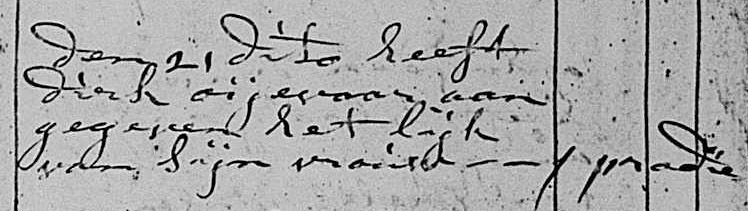 den 21 dito heeft
dirk oijevaar aan
gegeven het lijk
van sijn vrouw - - / pro die